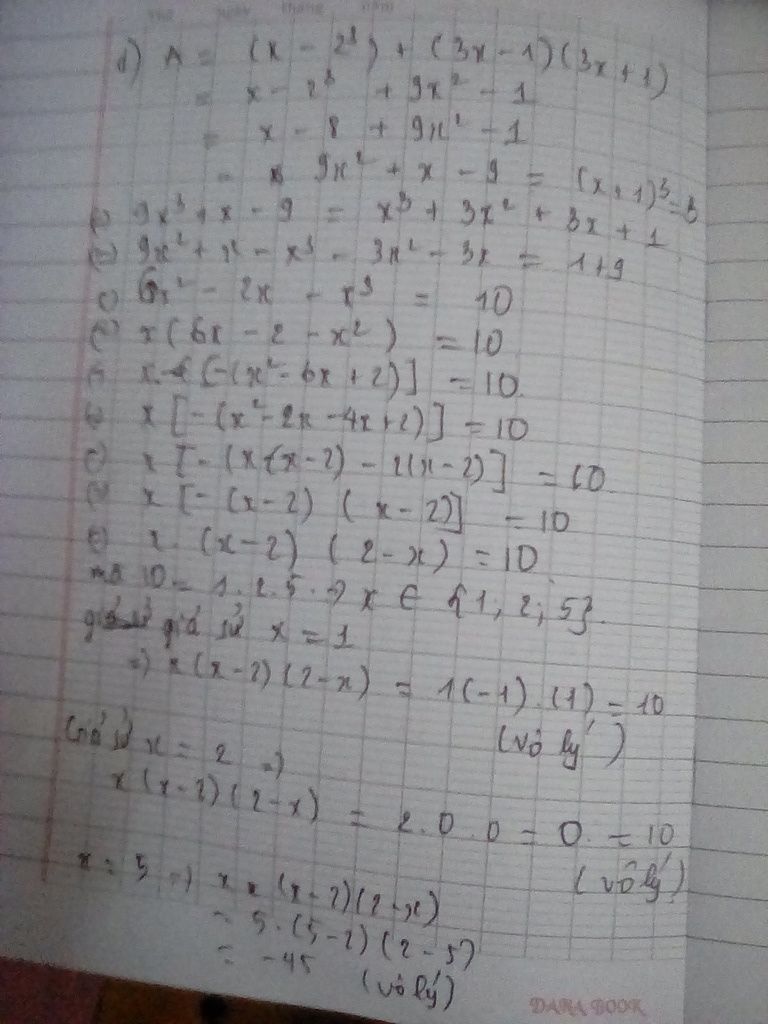 d) A = (x - 2³) + (3x - 1)(3x + 1)
= x - 2³ + 9x² - 1
= x - 8 + 9x² - 1
= 9x² + x - 9 = (x + 1)³ = B
(=) 9x³ + x - 9 = x³ + 3x² + 3x + 1
(=) 9x² + x - x³ - 3x² - 3x = 1 + 9
(=) 6x² - 2x - x³ = 10
(=) x(6x - 2 - x²) = 10
(=) x [-(x² - 6x + 2)] = 10
(=) x [-(x² - 2x - 4x + 2)] = 10
(=) x [-(x(x - 2) - 2(x - 2)] = 10
(=) x [-(x - 2) (x - 2)] = 10
(=) x. (x - 2) (2 - x) = 10
mà 10 = 1.2.5 => x ∈ {1; 2; 5}.
giả sử x = 1
=) x(x - 2)(2 - x) = 1(-1).(1) = 10
(vô lý)
Giả sử x = 2 =)
x(x - 2)(2 - x) = 2.0.0 = 0. = 10
(vô lý)
x = 5 =) x x (x - 2)(2 - x)
= 5.(5 - 2)(2 - 5)
= -45 (vô lý)
DARA BOOK